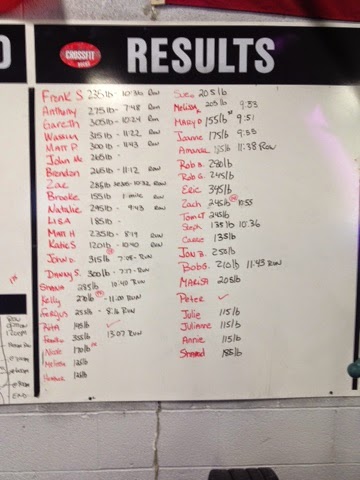 CROSSFIT
RESULTS
Frank S 235lb - 10:36 Row
Anthony 275lb - 7:48 Run
Gareth 305lb - 10:24 Row
315lb - 11:22 Row
Matt P 300lb - 11:43 Row
John Mc 265lb
Brendon 265lb - 11:12 Row
Zac 10:32 Row
Brooke 155lb 1 mile Row
Natalie 295lb - 9:43 Row
LISA 185lb
Matt H 235lb - 8:19 Row
Katie S 120lb - 10:40 Row
John O. 315lb - 7:08 - Run
Danny S. 300lb - 7:17 - Run
285lb 10:40 Run
Kelly 270lb - 11:00 Run
Fergus 255lb - 8:16 Run
Rita 145lb
355lb 13:07 Run
Nicole 170lb
Melissa 126lb
126lb
Sue 205lb
Melissa 205lb 9:33
Mary D 155lb 9:51
Joanne 175lb 9:35
Amanda 185lb 11:38 Row
Rob B. 280lb
Rob G. 245lb
Eric 345lb
Zach 245lb 10:55
Tom T 245lb
Steph 135lb 10:36
Carrie 135lb
Jon B. 255lb
Bob S. 210lb 11:43 Row
Marisa 205lb
Peter ✓
Julie 115lb
Julianne 115lb
Annie 115lb
Shared 185lb
Row
END